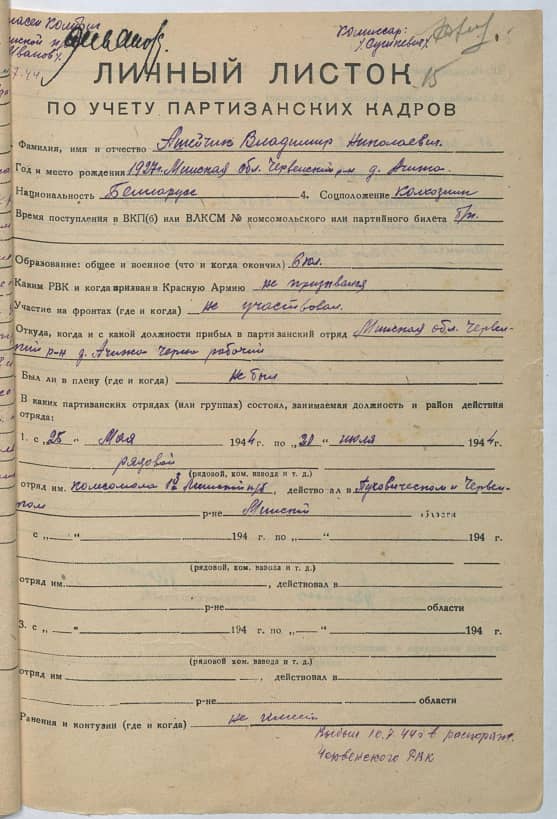 Комиссар:
15
ЛИЧНЫЙ ЛИСТОК
ПО УЧЕТУ ПАРТИЗАНСКИХ КАДРОВ
Фамилия, имя и отчество Владимир Николаевич
Год и место рождения 1927г. Минская обл. Червенский р-н д.
Национальность Белларус 4. Соцположение Колхозник
Время поступления в ВКП(б) или ВЛКСМ № комсомольского или партийного билета б/п.
Образование: общее и военное (что и когда окончил) 6 кл.
Каким РВК и когда призван в Красную Армию не призвался
Участие на фронтах (где и когда) не участвовал.
Откуда, когда и с какой должности прибыл в партизанский отряд Минская обл. Черве-
р-н д. рабочий
Был ли в плену (где и когда) не был
В каких партизанских отрядах (или группах) состоял, занимаемая должность и район действия
отряда:
1. с „25 " Мая 1944 г. по „30 " июля 1944 г.
рядовой
(рядовой, ком. взвода и т. д.)
отряд им. комсомола 1й Минской п/б, действовал в Пуховическом и Червен-
ком р-не Минской области
с „ — " 194 г. по „ — " 194 г.
(рядовой, ком. взвода и т. д.)
отряд им. , действовал в
р-не области
3. с „ — " 194 г. по „ — " 194 г.
(рядовой ком. взвода и т. д.)
отряд им , действовал в
р-не области
Ранения и контузии (где и когда) не имеет
Выбыл 10.7.44г в распоряж.
Червенского РВК